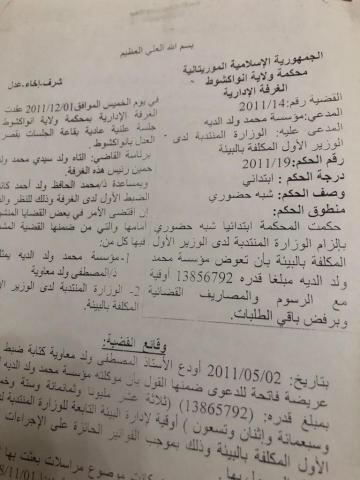 بسم الله العلي العظيم
الجمهورية الإسلامية الموريتانية
محكمة ولاية انواكشوط
الغرفة الإدارية
القضية رقم:2011/14
المدعي:مؤسسة محمد ولد الديه
المدعى عليه: الوزارة المنتدبة لدى
الوزير الأول المكلفة بالبيئة
رقم الحكم:2011/19
درجة الحكم : ابتدائي
وصف الحكم: شبه حضوري
منطوق الحكم:
حكمت المحكمة ابتدائيا شبه حضوري
بإلزام الوزارة المنتدبة لدى الوزير الأول
المكلفة بالبيئة بأن تعوض مؤسسة محمد
ولد الديه مبلغا قدره 13856792 أوقية
مع الرسوم والمصاريف القضائية
وبرفض باقي الطلبات.
شرف-إخاء-عدل
في يوم الخميس الموافق2011/12/01 عقدت
الغرفة الإدارية بمحكمة ولاية انواكشوط
جلسة علنية عادية بقاعة الجلسات بقصر
العدل بانواكشوط
برئاسة القاضي: التاه ولد سيدي محمد ولد
حمين رئيس هذه الغرفة.
وبمساعدة ذ/محمد الحافظ ولد أحمد كاتب
الضبط الأول لدى الغرفة وذلك للنظر
إن اقتضى الأمر في بعض القضايا
أمامها والتي من ضمنها القضية
فيها كل من:
1-مؤسسة محمد ولد الديه
ذ/المصطفى ولد معاوية
2- الوزارة المنتدبة لدى الوزير
المكلفة بالبيئة.
وقائع القضية:
بتاريخ: 2011/05/02 أودع الأستاذ المصطفى ولد معاوية كتابة ضبط
عريضة فاتحة للدعوى ضمنها القول بأن موكلته مؤسسة محمد ولد
بمبلغ قدره: (13865792) (ثلاثة عشر مليونا وثمانمائة وستة
وسبعمائة وإثنان وتسعون ) أوقية لإدارة البيئة التابعة للوزارة المنتدبة
الأول المكلفة بالبيئة وذلك بموجب الفواتير الحائزة على الإجراءات
موضوع مراسلات بعثت بها